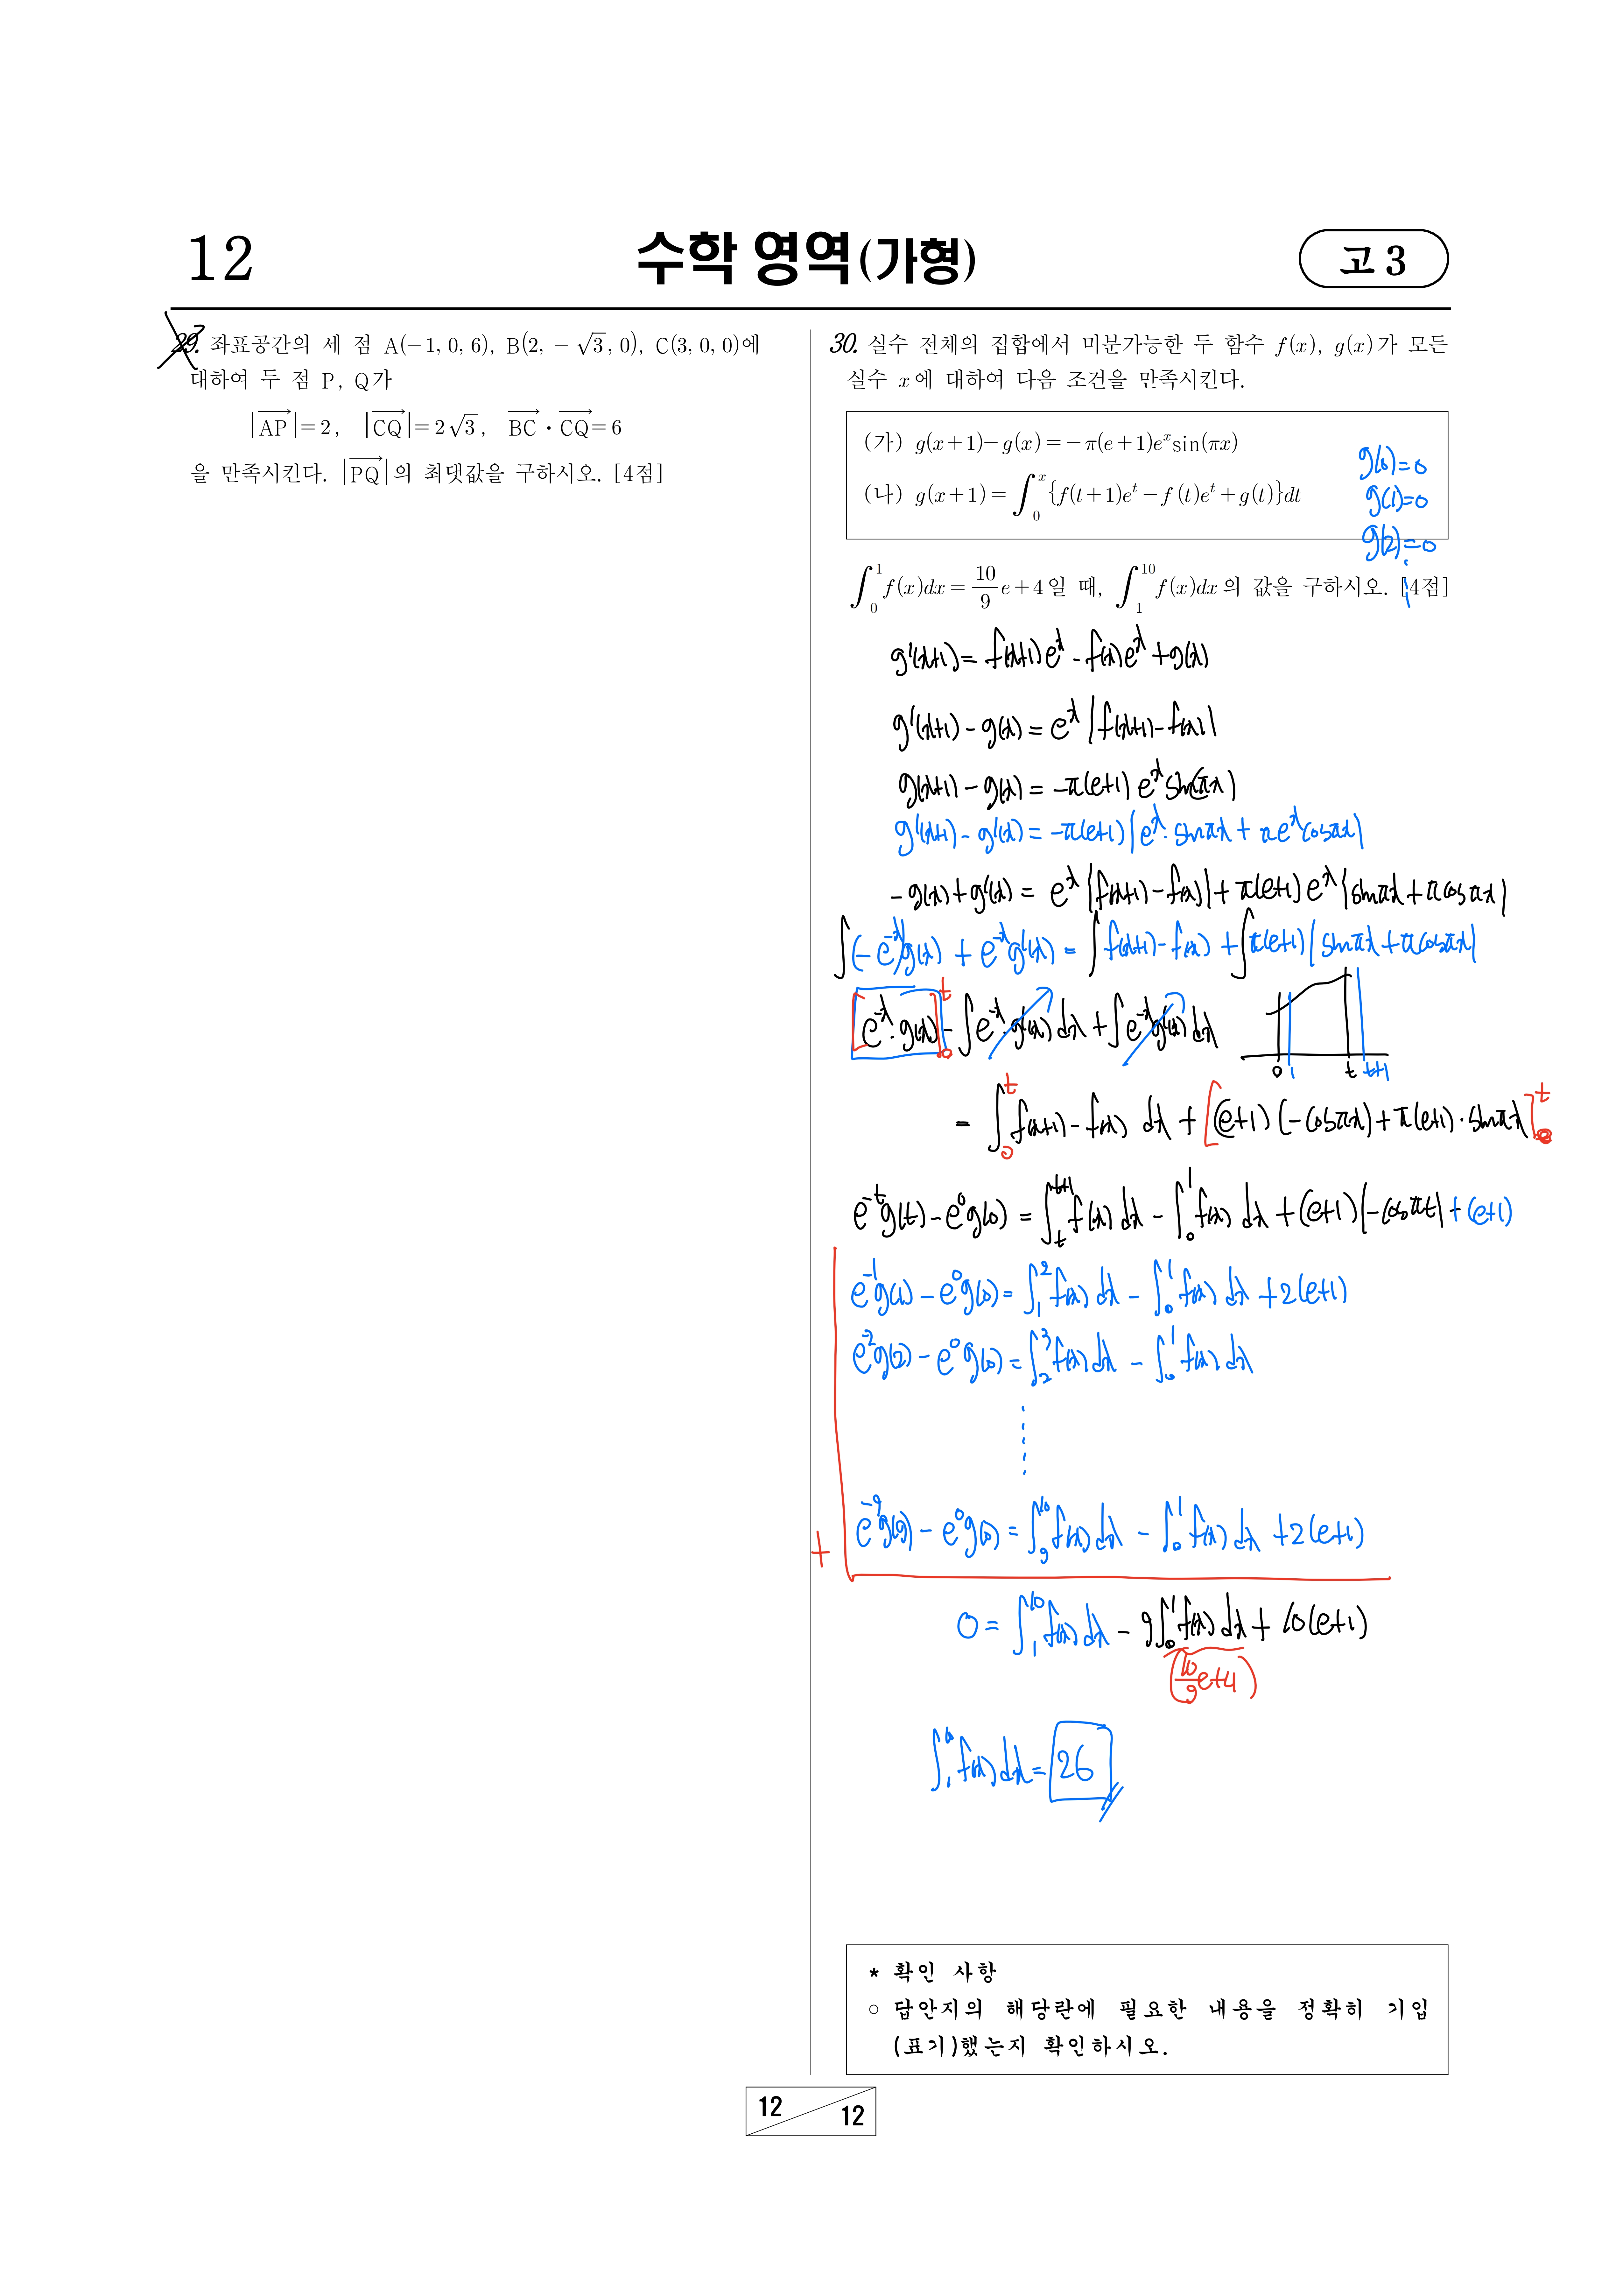 12
수학 영역(가형)
고3
29. 좌표공간의 세 점 A(−1, 0, 6), B(2, −√3, 0), C(3, 0, 0)에
대하여 두 점 P, Q가
|AP→|=2, |CQ→|=2√3, BC→·CQ→=6
을 만족시킨다. |PQ→|의 최댓값을 구하시오. [4점]
30. 실수 전체의 집합에서 미분가능한 두 함수 f(x), g(x)가 모든
실수 x에 대하여 다음 조건을 만족시킨다.
(가) g(x+1)−g(x)=−π(e+1)e^x sin(πx)
(나) g(x+1)=∫_0^x {f(t+1)e^t−f(t)e^t+g(t)}dt
g(0)=0
g(1)=0
g(2)=0
∫_0^1 f(x)dx=10/9 e+4일 때, ∫_1^10 f(x)dx의 값을 구하시오. [4점]
g'(x+1)=f(x+1)e^x-f(x)e^x+g(x)
g'(x+1)-g(x)=e^x{f(x+1)-f(x)}
g(x+1)-g(x)=-π(e+1)e^x sin(πx)
g'(x+1)-g'(x)=-π(e+1){e^x·sinπx+πe^x cosπx}
-g(x)+g'(x)=e^x{f(x+1)-f(x)}+π(e+1)e^x{sinπx+πcosπx}
∫(-e^-x g(x)+e^-x g'(x)=∫f(x+1)-f(x)+∫π(e+1){sinπx+πcosπx}
[e^-x·g(x)]_0^t-∫e^-x·g'(x)dx+∫e^-x g'(x)dx
0 1 t t+1
=∫_0^t f(x+1)-f(x) dx+[(e+1)(-cosπx)+π(e+1)·sinπx]_0^t
e^-t g(t)-e^0 g(0)=∫_t^t+1 f(x)dx-∫_0^1 f(x)dx+(e+1){-cosπt}+(e+1)
e^-1 g(1)-e^0 g(0)=∫_1^2 f(x)dx-∫_0^1 f(x)dx+2(e+1)
e^-2 g(2)-e^0 g(0)=∫_2^3 f(x)dx-∫_0^1 f(x)dx
+
e^-9 g(9)-e^0 g(0)=∫_9^10 f(x)dx-∫_0^1 f(x)dx+2(e+1)
0=∫_1^10 f(x)dx-9∫_0^1 f(x)dx+10(e+1)
(10/9 e+4)
∫_1^10 f(x)dx=26
* 확인 사항
○ 답안지의 해당란에 필요한 내용을 정확히 기입
(표기)했는지 확인하시오.
12
12